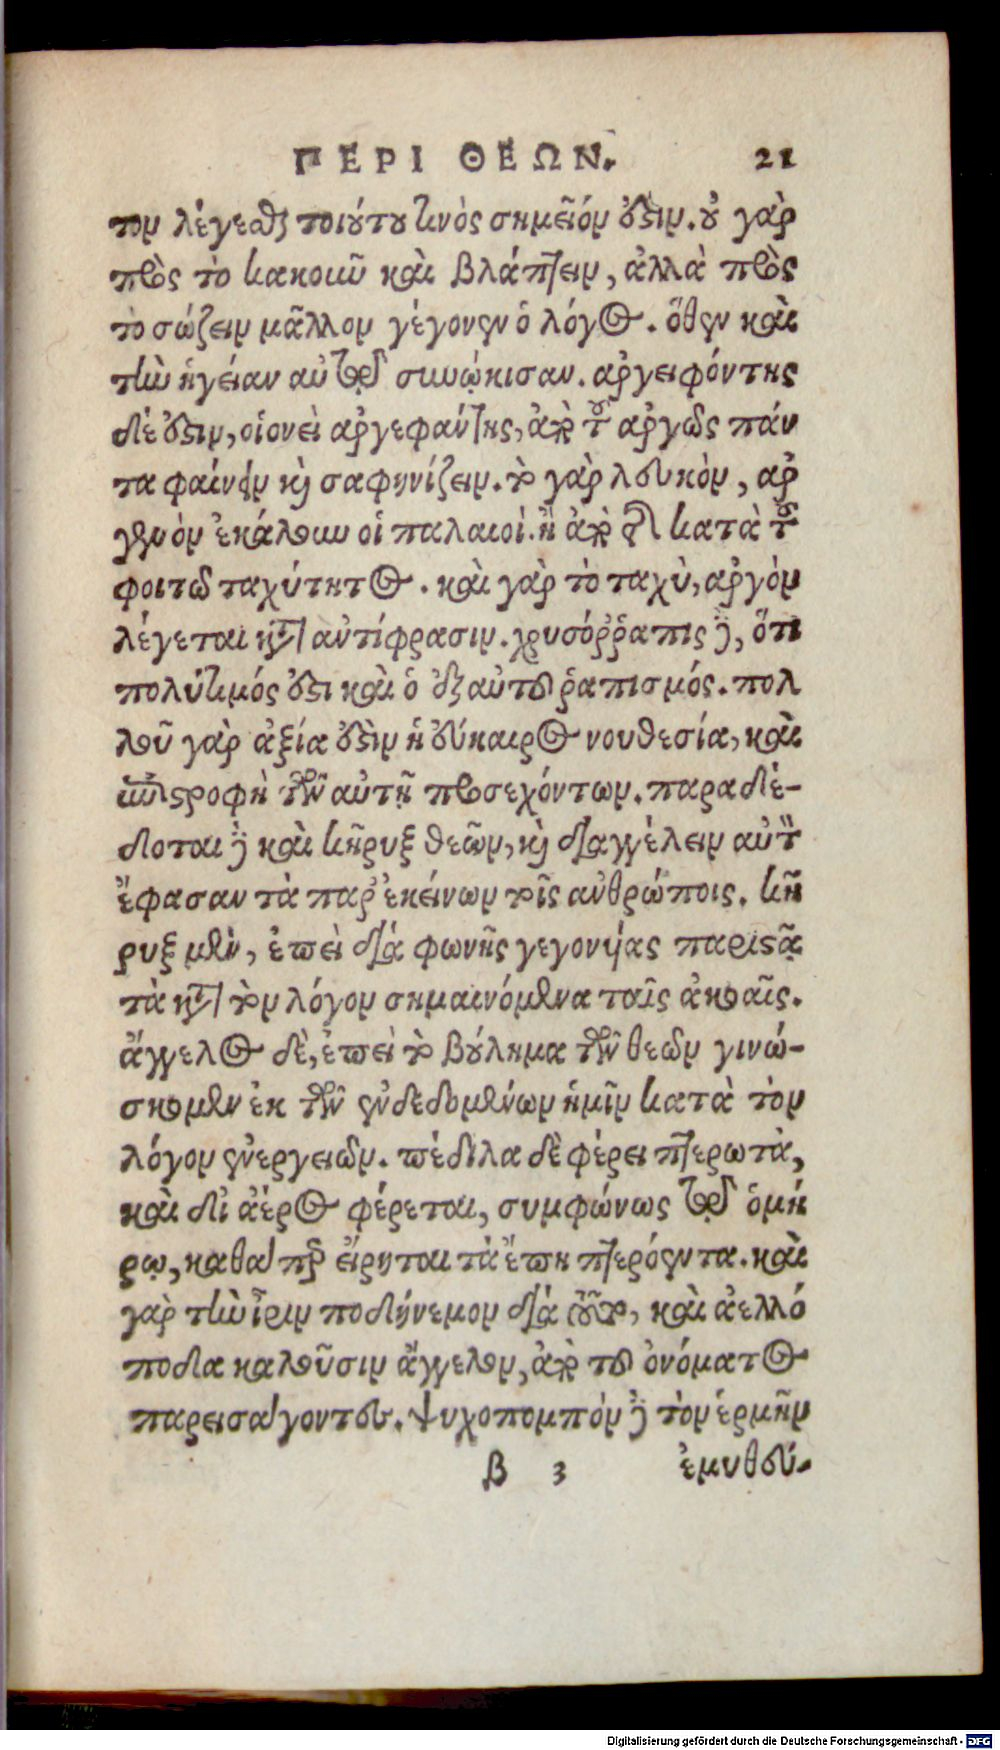 ΠΕΡΙ ΘΕΩΝ. 21
τον λέγεσθαι τοιούτου τινὸς σημεῖόν ἐστιν. οὐ γὰρ
πρὸς τὸ κακοιῦν καὶ βλάπτειν, ἀλλὰ πρὸς
τὸ σώζειν μᾶλλον γέγονεν ὁ λόγος. ὅθεν καὶ
τὴν ὑγείαν αὐτῷ συνῴκισαν. ἀργειφόντης
δέ ἐστιν, οἱονεὶ ἀργεφάντης, ἀπὸ τοῦ ἀργῶς πάν
τα φαίνειν καὶ σαφηνίζειν. τὸ γὰρ λευκὸν, ἀρ
γεννὸν ἐκάλουν οἱ παλαιοί. ἢ ἀπὸ τῆς κατὰ τοῦ
φοιτῶ ταχύτητος. καὶ γὰρ τὸ ταχὺ, ἀργὸν
λέγεται κατ' ἀντίφρασιν. χρυσόῤῥαπις δὲ, ὅτι
πολύτιμός ἐστι καὶ ὁ ἐξ αὐτοῦ ῥαπισμός. πολ
λοῦ γὰρ ἀξία ἐστὶν ἡ εὔκαιρος νουθεσία, καὶ
ἐπιστροφὴ τῶν αὐτῇ προσεχόντων. παραδέ-
δοται δὲ καὶ κῆρυξ θεῶν, καὶ διαγγέλειν αὐτὸν
ἔφασαν τὰ παρ' ἐκείνων τοῖς ἀνθρώποις. κῆ
ρυξ μὲν, ἐπεὶ διὰ φωνῆς γεγονυίας παριστᾷ
τὰ κατὰ τὸν λόγον σημαινόμενα ταῖς ἀκοαῖς.
ἄγγελος δὲ, ἐπεὶ τὸ βούλημα τῶν θεῶν γινώ-
σκομεν ἐκ τῶν ἐνδεδομένων ἡμῖν κατὰ τὸν
λόγον ἐνεργειῶν. πέδιλα δὲ φέρει πτερωτὰ,
καὶ δι' ἀέρος φέρεται, συμφώνως τῷ ὁμή
ρῳ, καθάπερ εἴρηται τὰ ἔπη πτερόεντα. καὶ
γὰρ τὴν ἶριν ποδήνεμον διὰ τοῦτο, καὶ ἀελλό
ποδα καλοῦσιν ἄγγελον, ἀπὸ τοῦ ὀνόματος
παρεισάγοντες. ψυχοπομπὸν δὲ τὸν ἑρμῆν
β 3 ἐμυθεύ-
Digitalisierung gefördert durch die Deutsche Forschungsgemeinschaft - DFG